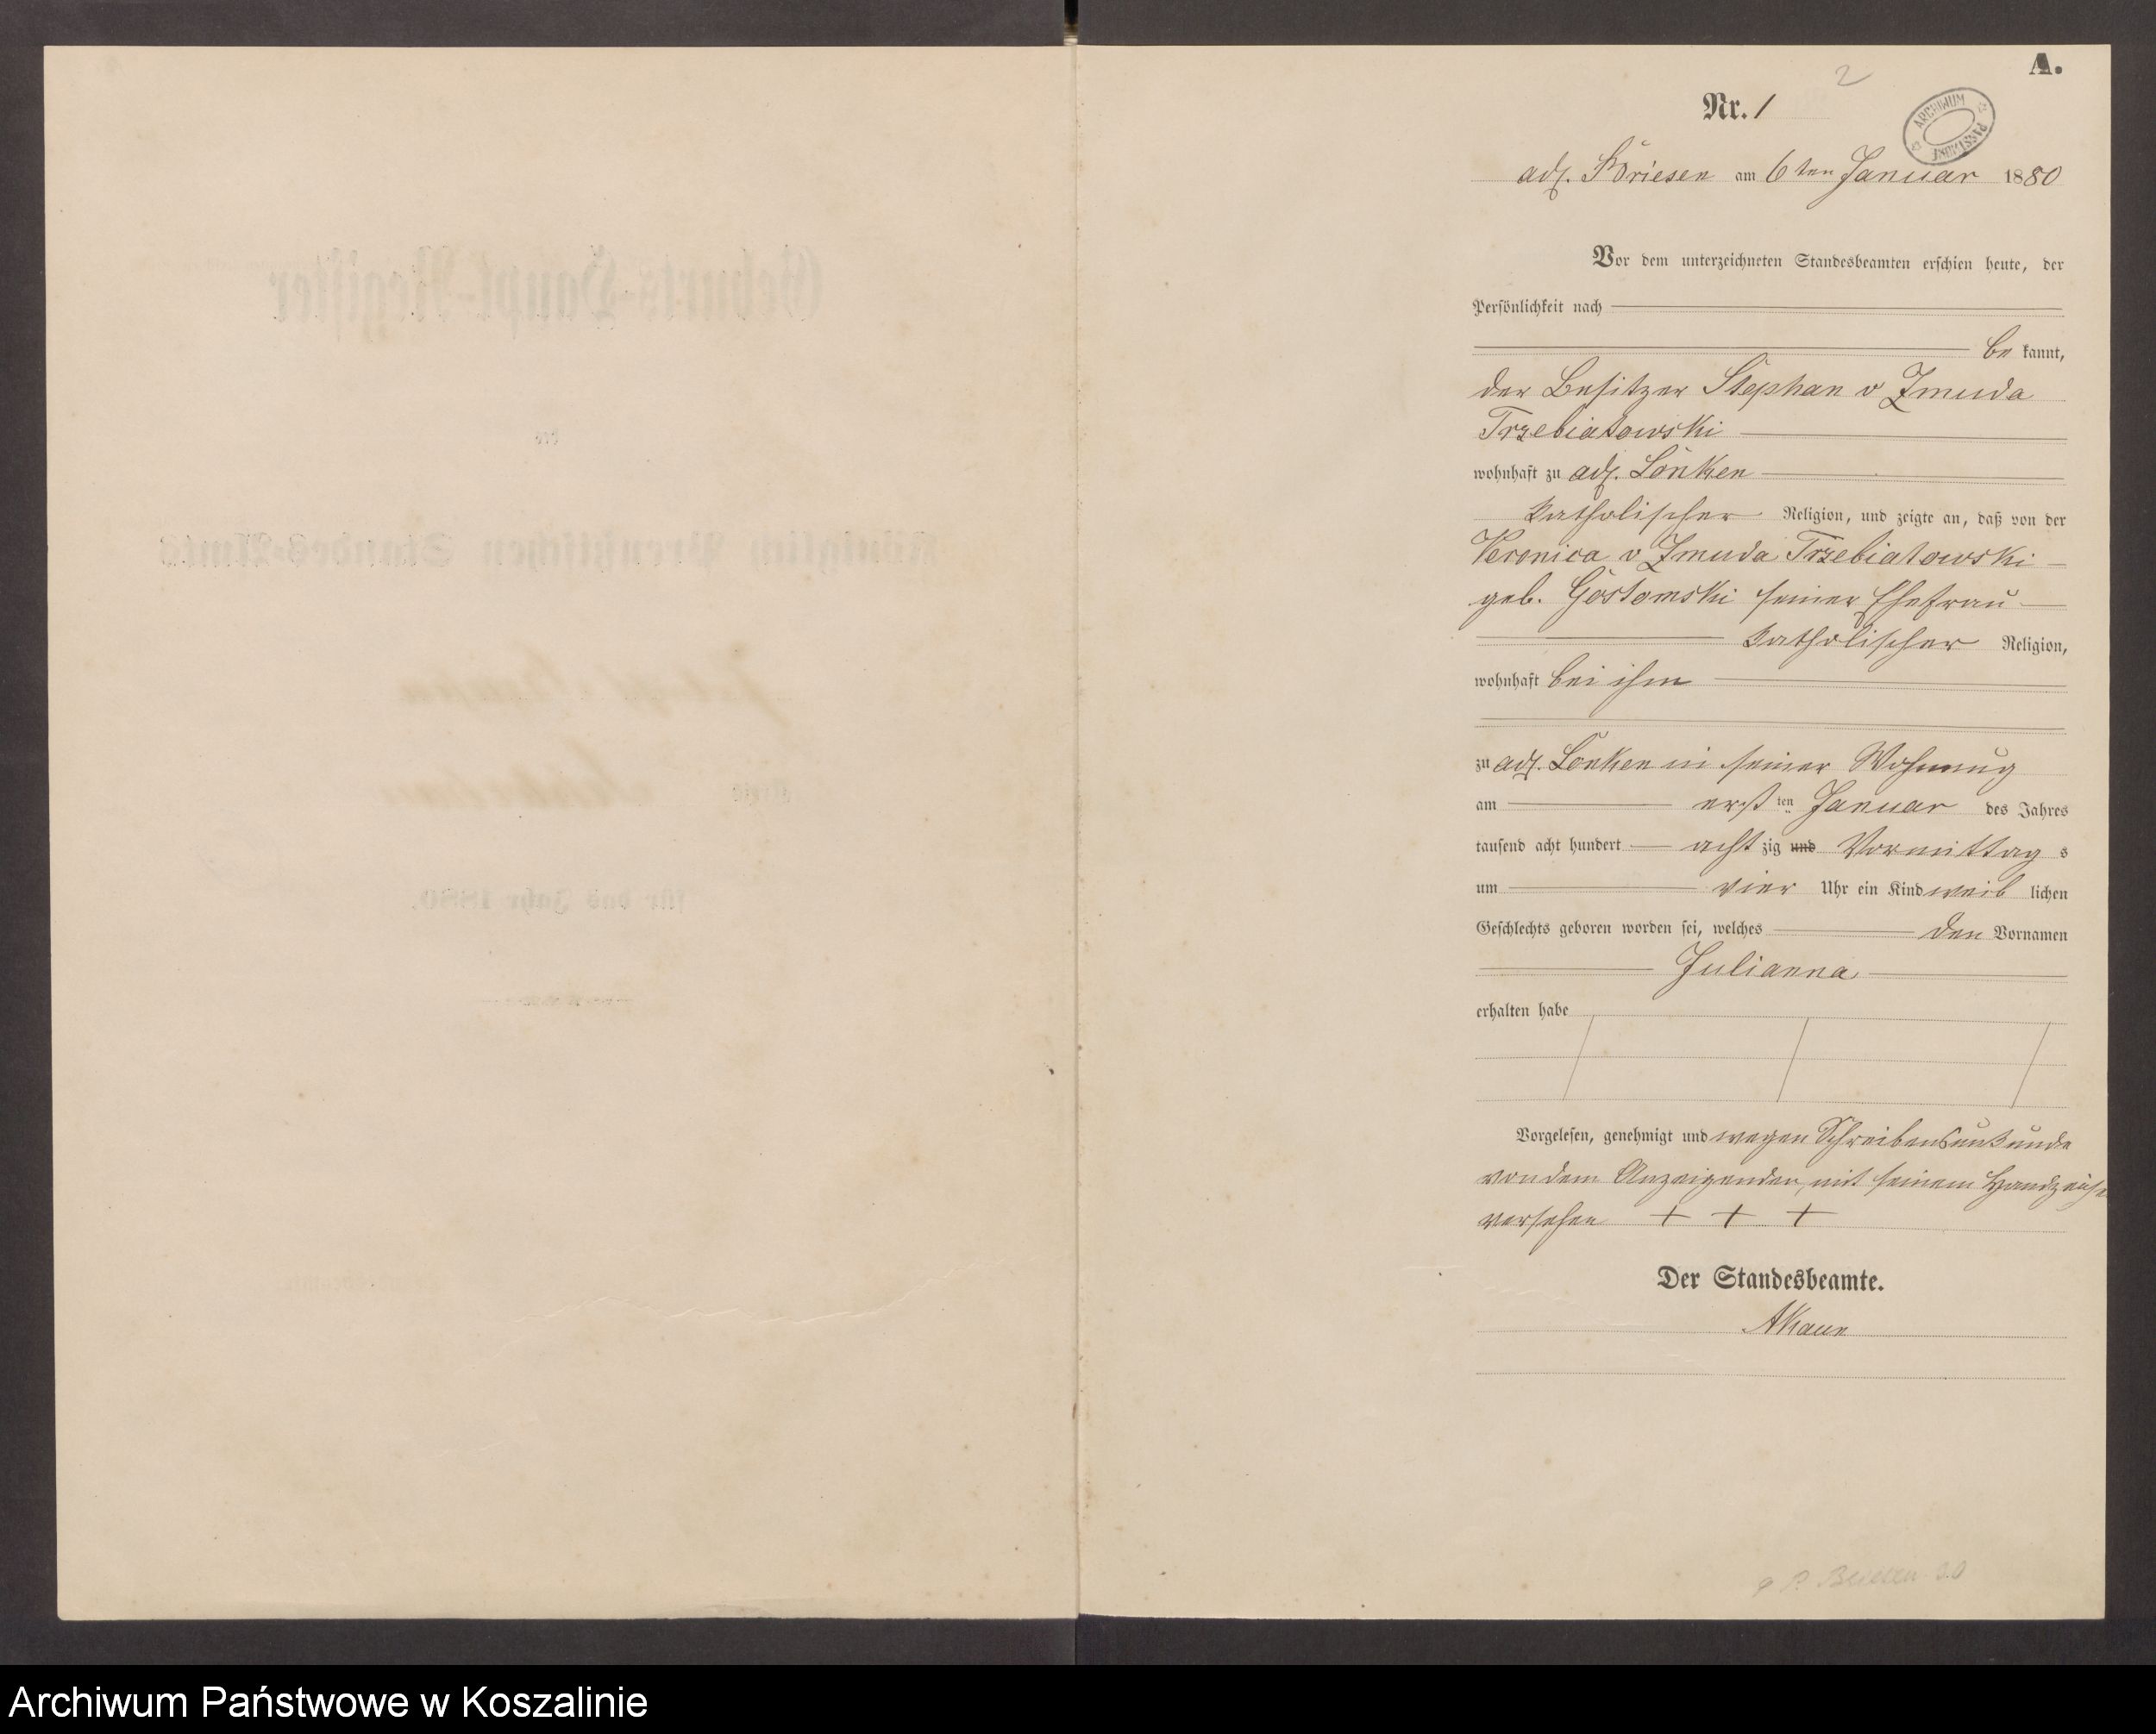 A.
2
Nr. 1
ARCHIWUM PAŃSTWOWE
adl. Briesen am 6ten Januar 1880
Vor dem unterzeichneten Standesbeamten erschien heute, der
Persönlichkeit nach
be kannt,
der Besitzer Stephan v Zmuda
Trzebiatowski
wohnhaft zu adl. Lonken
katholischer Religion, und zeigte an, daß von der
Veronica v Zmuda Trzebiatowski
geb. Gostomski seiner Ehefrau
katholischer Religion,
wohnhaft bei ihm
zu adl. Lonken in seiner Wohnung
am erst ten Januar des Jahres
tausend acht hundert acht zig und Vormittag s
um vier Uhr ein Kind weib lichen
Geschlechts geboren worden sei, welches den Vornamen
Julianna
erhalten habe
Vorgelesen, genehmigt und wegen Schreibensunkunde
von dem Anzeigenden, mit seinem Handzeichen
versehen + + +
Der Standesbeamte.
Briesen
Archiwum Państwowe w Koszalinie